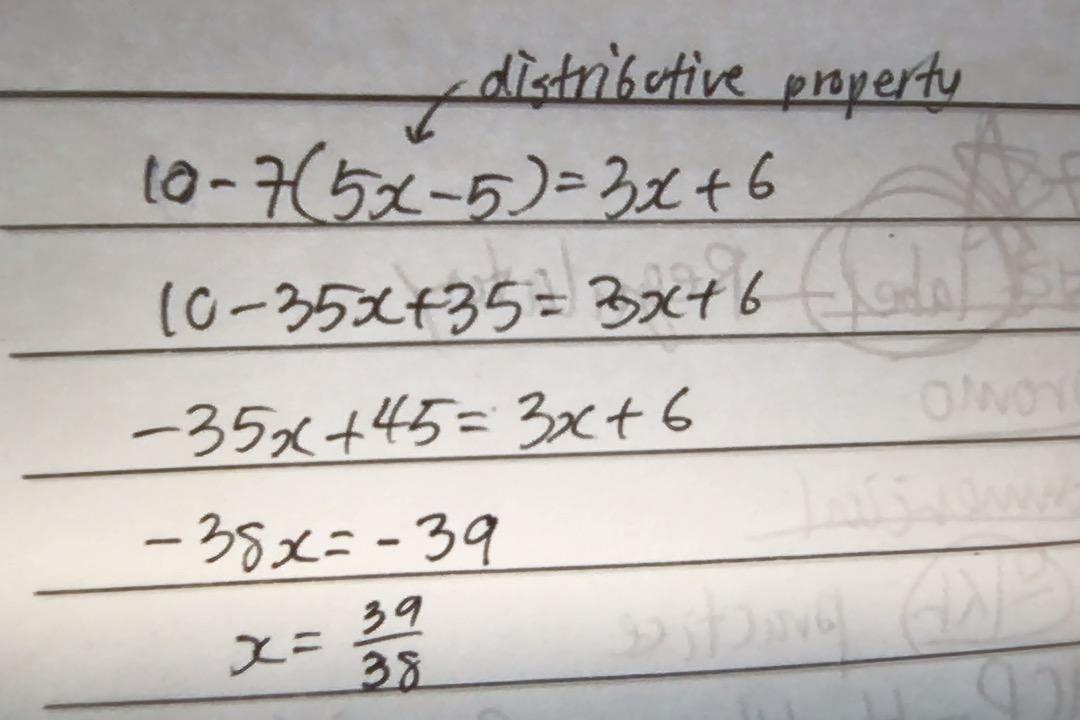 distributive property
10-7(5x-5)=3x+6
10-35x+35=3x+6
-35x+45=3x+6
-38x=-39
x=39/38